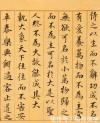 恃之以生而不辭功成不名
有愛養萬物而不為主常
無欲可名於小萬物歸
焉而不為主可名於大是以聖
人終不為大故能成其大
執大象天下往往而不害安
平泰樂與餌過客止道之